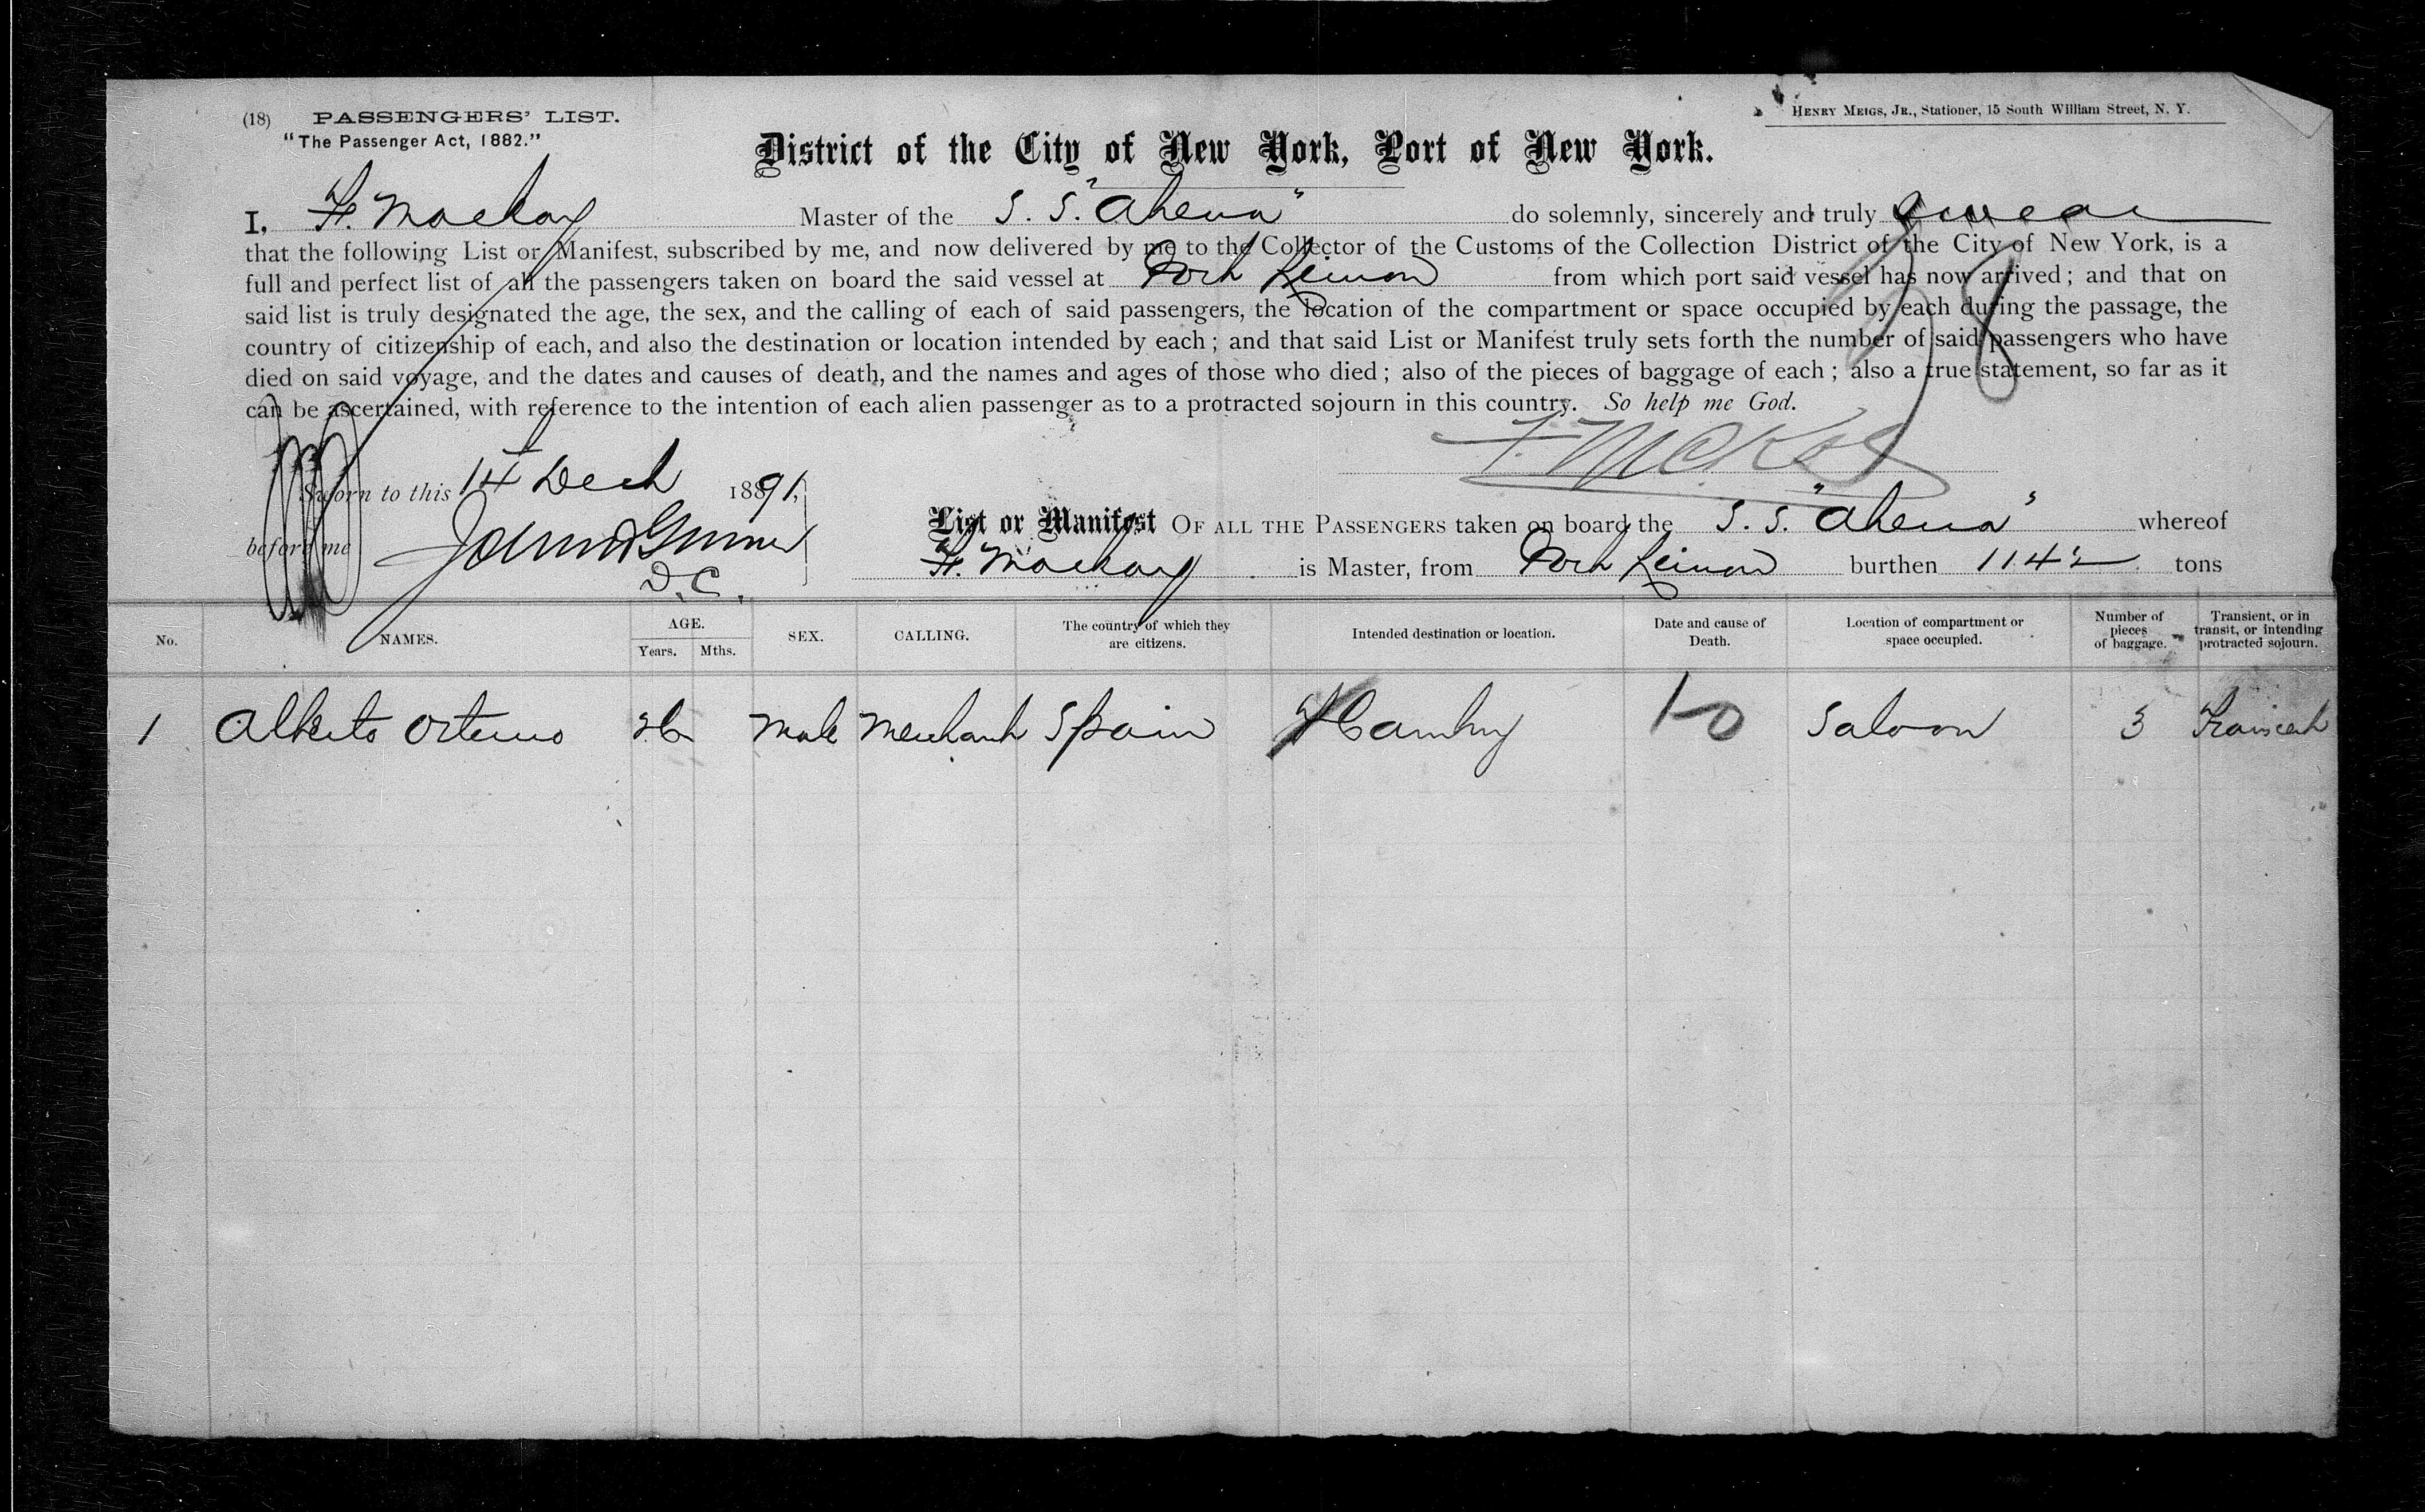 (18) PASSENGERS' LIST.
"The Passenger Act, 1882."
HENRY MEIGS, JR., Stationer, 15 South William Street, N. Y.
District of the City of New York, Port of New York.
I, F. Mackay Master of the S. S. "Athena" do solemnly, sincerely and truly swear
that the following List or Manifest, subscribed by me, and now delivered by me to the Collector of the Customs of the Collection District of the City of New York, is a
full and perfect list of all the passengers taken on board the said vessel at Port Limon from which port said vessel has now arrived; and that on
said list is truly designated the age, the sex, and the calling of each of said passengers, the location of the compartment or space occupied by each during the passage, the
country of citizenship of each, and also the destination or location intended by each; and that said List or Manifest truly sets forth the number of said passengers who have
died on said voyage, and the dates and causes of death, and the names and ages of those who died; also of the pieces of baggage of each; also a true statement, so far as it
can be ascertained, with reference to the intention of each alien passenger as to a protracted sojourn in this country. So help me God.
Sworn to this 14 Dech 1891,
before me
D. C.
List or Manifest OF ALL THE PASSENGERS taken on board the S. S. "Athena" whereof
F. Mackay is Master, from Port Limon burthen 1142 tons
No. NAMES. AGE. Years. Mths. SEX. CALLING. The country of which they are citizens. Intended destination or location. Date and cause of Death. Location of compartment or space occupied. Number of pieces of baggage. Transient, or in transit, or intending protracted sojourn.
1 Alberto Male Merchant Spain Saloon 3 Transient